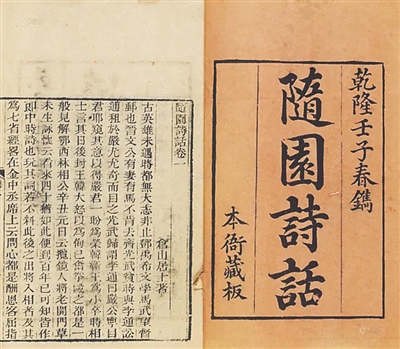 乾隆壬子春鐫
隨園詩話
本衙藏板
隨園詩話卷一
倉山居士著
古英雄未遇時都無大志非止鄧禹希文學馬武望督
郵也晉文公有妻有馬不肯去齊光武貧時與李通訟
逋租於嚴尤尤奇而目之光武歸謂李通曰嚴公寧目
君耶窺其意以得嚴君一盼為榮韓蘄王為小卒時相
士言其日後封王韓大怒以為侮己奮拳毆之都是一
般見解鄂西林相公辛丑元日云攬鏡人將老開門草
未生詠懷云看來四十猶如此便到百年已可知皆作
郎中時詩也玩其詞若不料此後之出將入相者及其
為七省經略在金中丞席上云問心都是酬恩客屈指